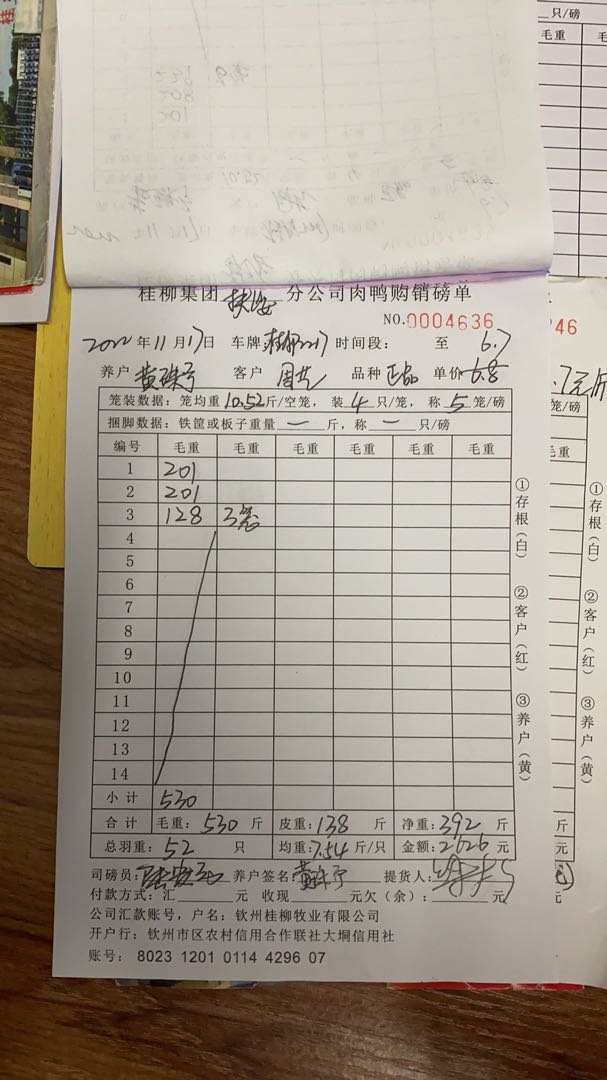 桂柳集团 扶绥 分公司肉鸭购销磅单
NO.0004636
2022年11月17日 车牌 时间段: 至 6.7
养户 客户 周艺 品种 正品 单价 6.8
笼装数据: 笼均重10.52斤/空笼, 装4只/笼, 称5笼/磅
捆脚数据: 铁筐或板子重量 — 斤, 称 — 只/磅
编号 毛重 毛重 毛重 毛重 毛重 毛重
1 201
2 201
3 128 3笼
4
5
6
7
8
9
10
11
12
13
14
小计 530
合计 毛重: 530 斤 皮重: 138 斤 净重: 392 斤
总羽重: 52 只 均重: 7.54斤/只 金额: 2626元
司磅员: 养户签名: 提货人:
付款方式: 汇 元 收现 元欠(余): 元
公司汇款账号, 户名: 钦州桂柳牧业有限公司
开户行: 钦州市区农村信用合作联社大垌信用社
账号: 8023 1201 0114 4296 07
①存根(白) ②客户(红) ③养户(黄)
只/磅
毛重
246
.7元/斤
笼/磅
毛重
①存根(白) ②客户(红) ③养户(黄)
斤
元
元